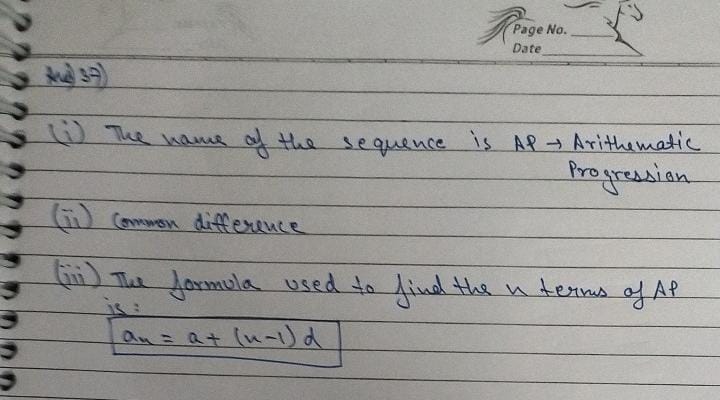 Page No.
Date
Ans) 37)
(i) The name of the sequence is AP → Arithematic
Progression
(ii) Common difference
(iii) The formula used to find the n terms of AP
is:
an = a + (n-1) d